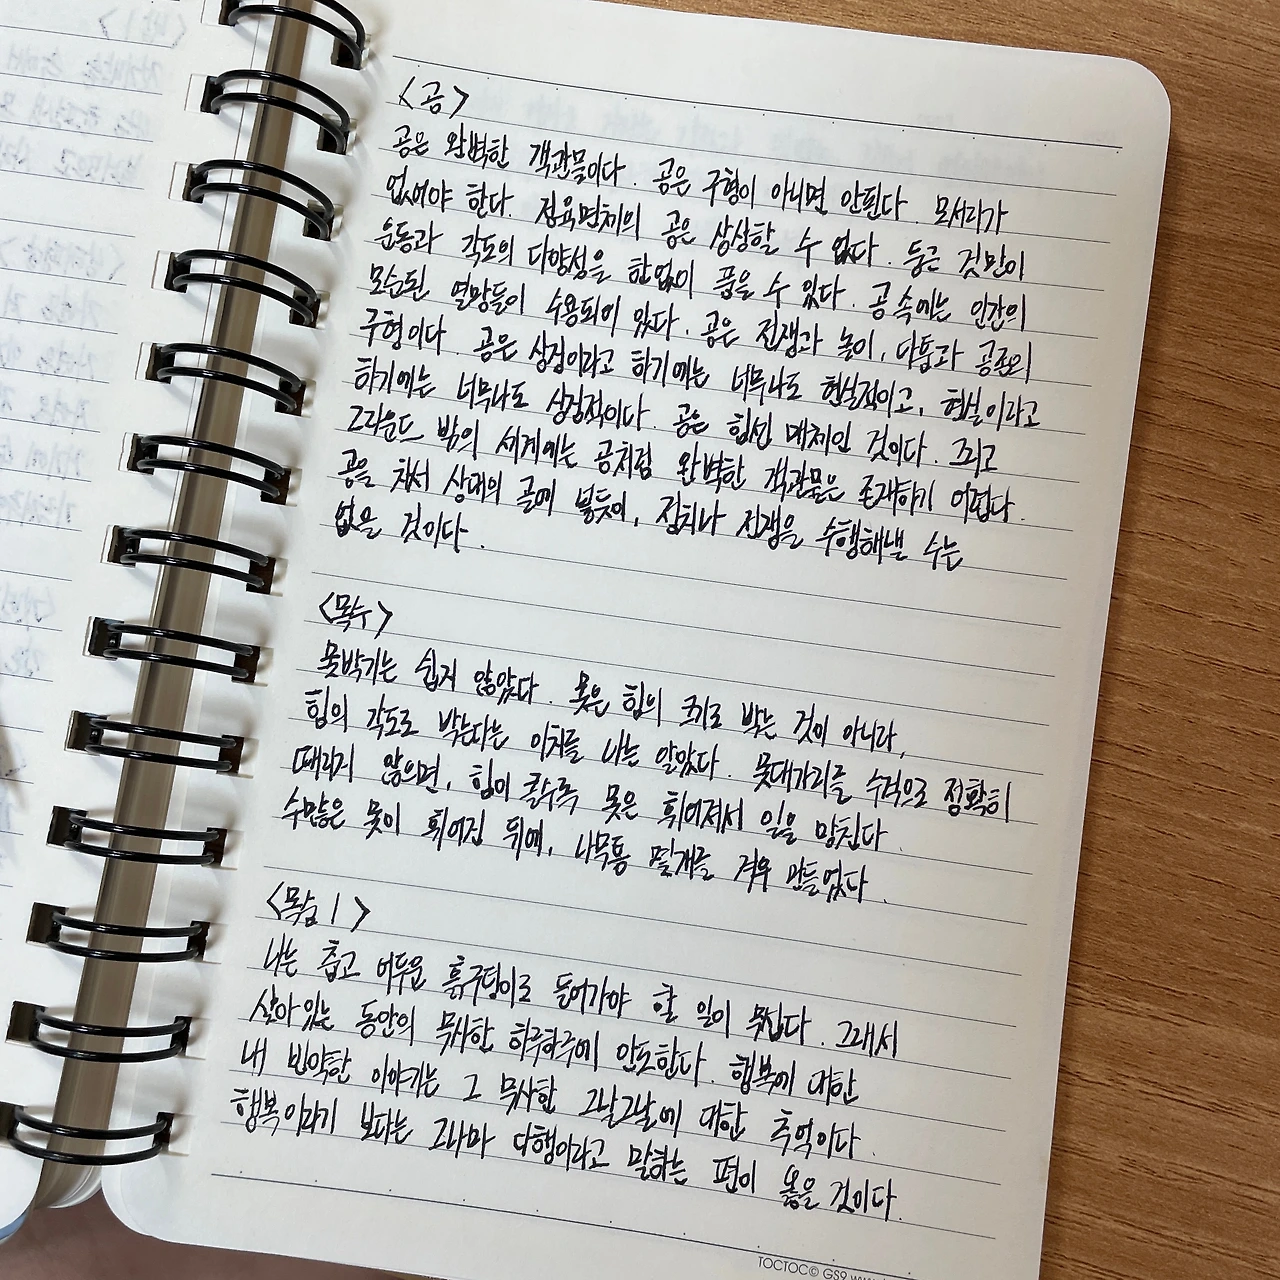 <공>
공은 완벽한 객관물이다. 공은 구형이 아니면 안된다. 모서리가
없어야 한다. 정육면체의 공은 상상할 수 없다. 둥근 것만이
운동과 각도의 다양성을 한없이 품을 수 있다. 공 속에는 인간의
모순된 열망들이 수용되어 있다. 공은 전쟁과 놀이, 다툼과 공존의
구형이다. 공은 상징이라고 하기에는 너무나도 현실적이고, 현실이라고
하기에는 너무나도 상징적이다. 공은 힘센 매체인 것이다. 그리고
그라운드 밖의 세계에는 공처럼 완벽한 객관물은 존재하기 어렵다.
공을 차서 상대의 골에 넣듯이, 정치나 전쟁을 수행해낼 수는
없을 것이다.
<목수>
못박기는 쉽지 않았다. 못은 힘의 크기로 박는 것이 아니라,
힘의 각도로 박는다는 이치를 나는 알았다. 못대가리를 수직으로 정확히
때리지 않으면, 힘이 클수록 못은 휘어져서 일을 망친다.
수많은 못이 휘어진 뒤에, 나무통 몇개를 겨우 만들었다.
<목숨 1>
나는 춥고 어두운 흙구덩이로 들어가야 할 일이 무섭다. 그래서
살아있는 동안의 무사한 하루하루에 안도한다. 행복에 대한
내 빈약한 이야기는 그 무사한 그날그날에 대한 추억이다.
행복이라기 보다는 그나마 다행이라고 말하는 편이 옳을 것이다.
TOCTOC© GS9